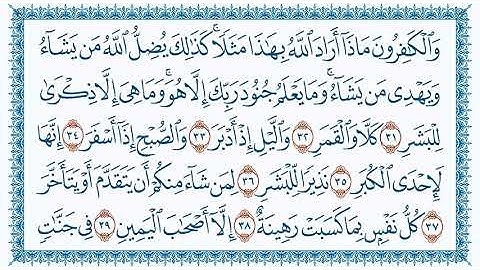 وَالْكَٰفِرُونَ مَاذَآ أَرَادَ اللَّهُ بِهَٰذَا مَثَلًا ۚ كَذَٰلِكَ يُضِلُّ اللَّهُ مَن يَشَآءُ
وَيَهْدِى مَن يَشَآءُ ۚ وَمَا يَعْلَمُ جُنُودَ رَبِّكَ إِلَّا هُوَ ۚ وَمَا هِىَ إِلَّا ذِكْرَىٰ
لِلْبَشَرِ ٣١ كَلَّا وَالْقَمَرِ ٣٢ وَالَّيْلِ إِذْ أَدْبَرَ ٣٣ وَالصُّبْحِ إِذَآ أَسْفَرَ ٣٤ إِنَّهَا
لَإِحْدَى الْكُبَرِ ٣٥ نَذِيرًا لِّلْبَشَرِ ٣٦ لِمَن شَآءَ مِنكُمْ أَن يَتَقَدَّمَ أَوْ يَتَأَخَّرَ
٣٧ كُلُّ نَفْسٍۭ بِمَا كَسَبَتْ رَهِينَةٌ ٣٨ إِلَّآ أَصْحَٰبَ الْيَمِينِ ٣٩ فِى جَنَّٰتٍ